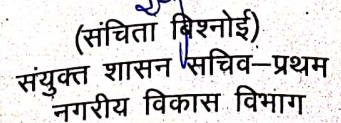 (संचिता बिश्नोई)
संयुक्त शासन सचिव–प्रथम
नगरीय विकास विभाग